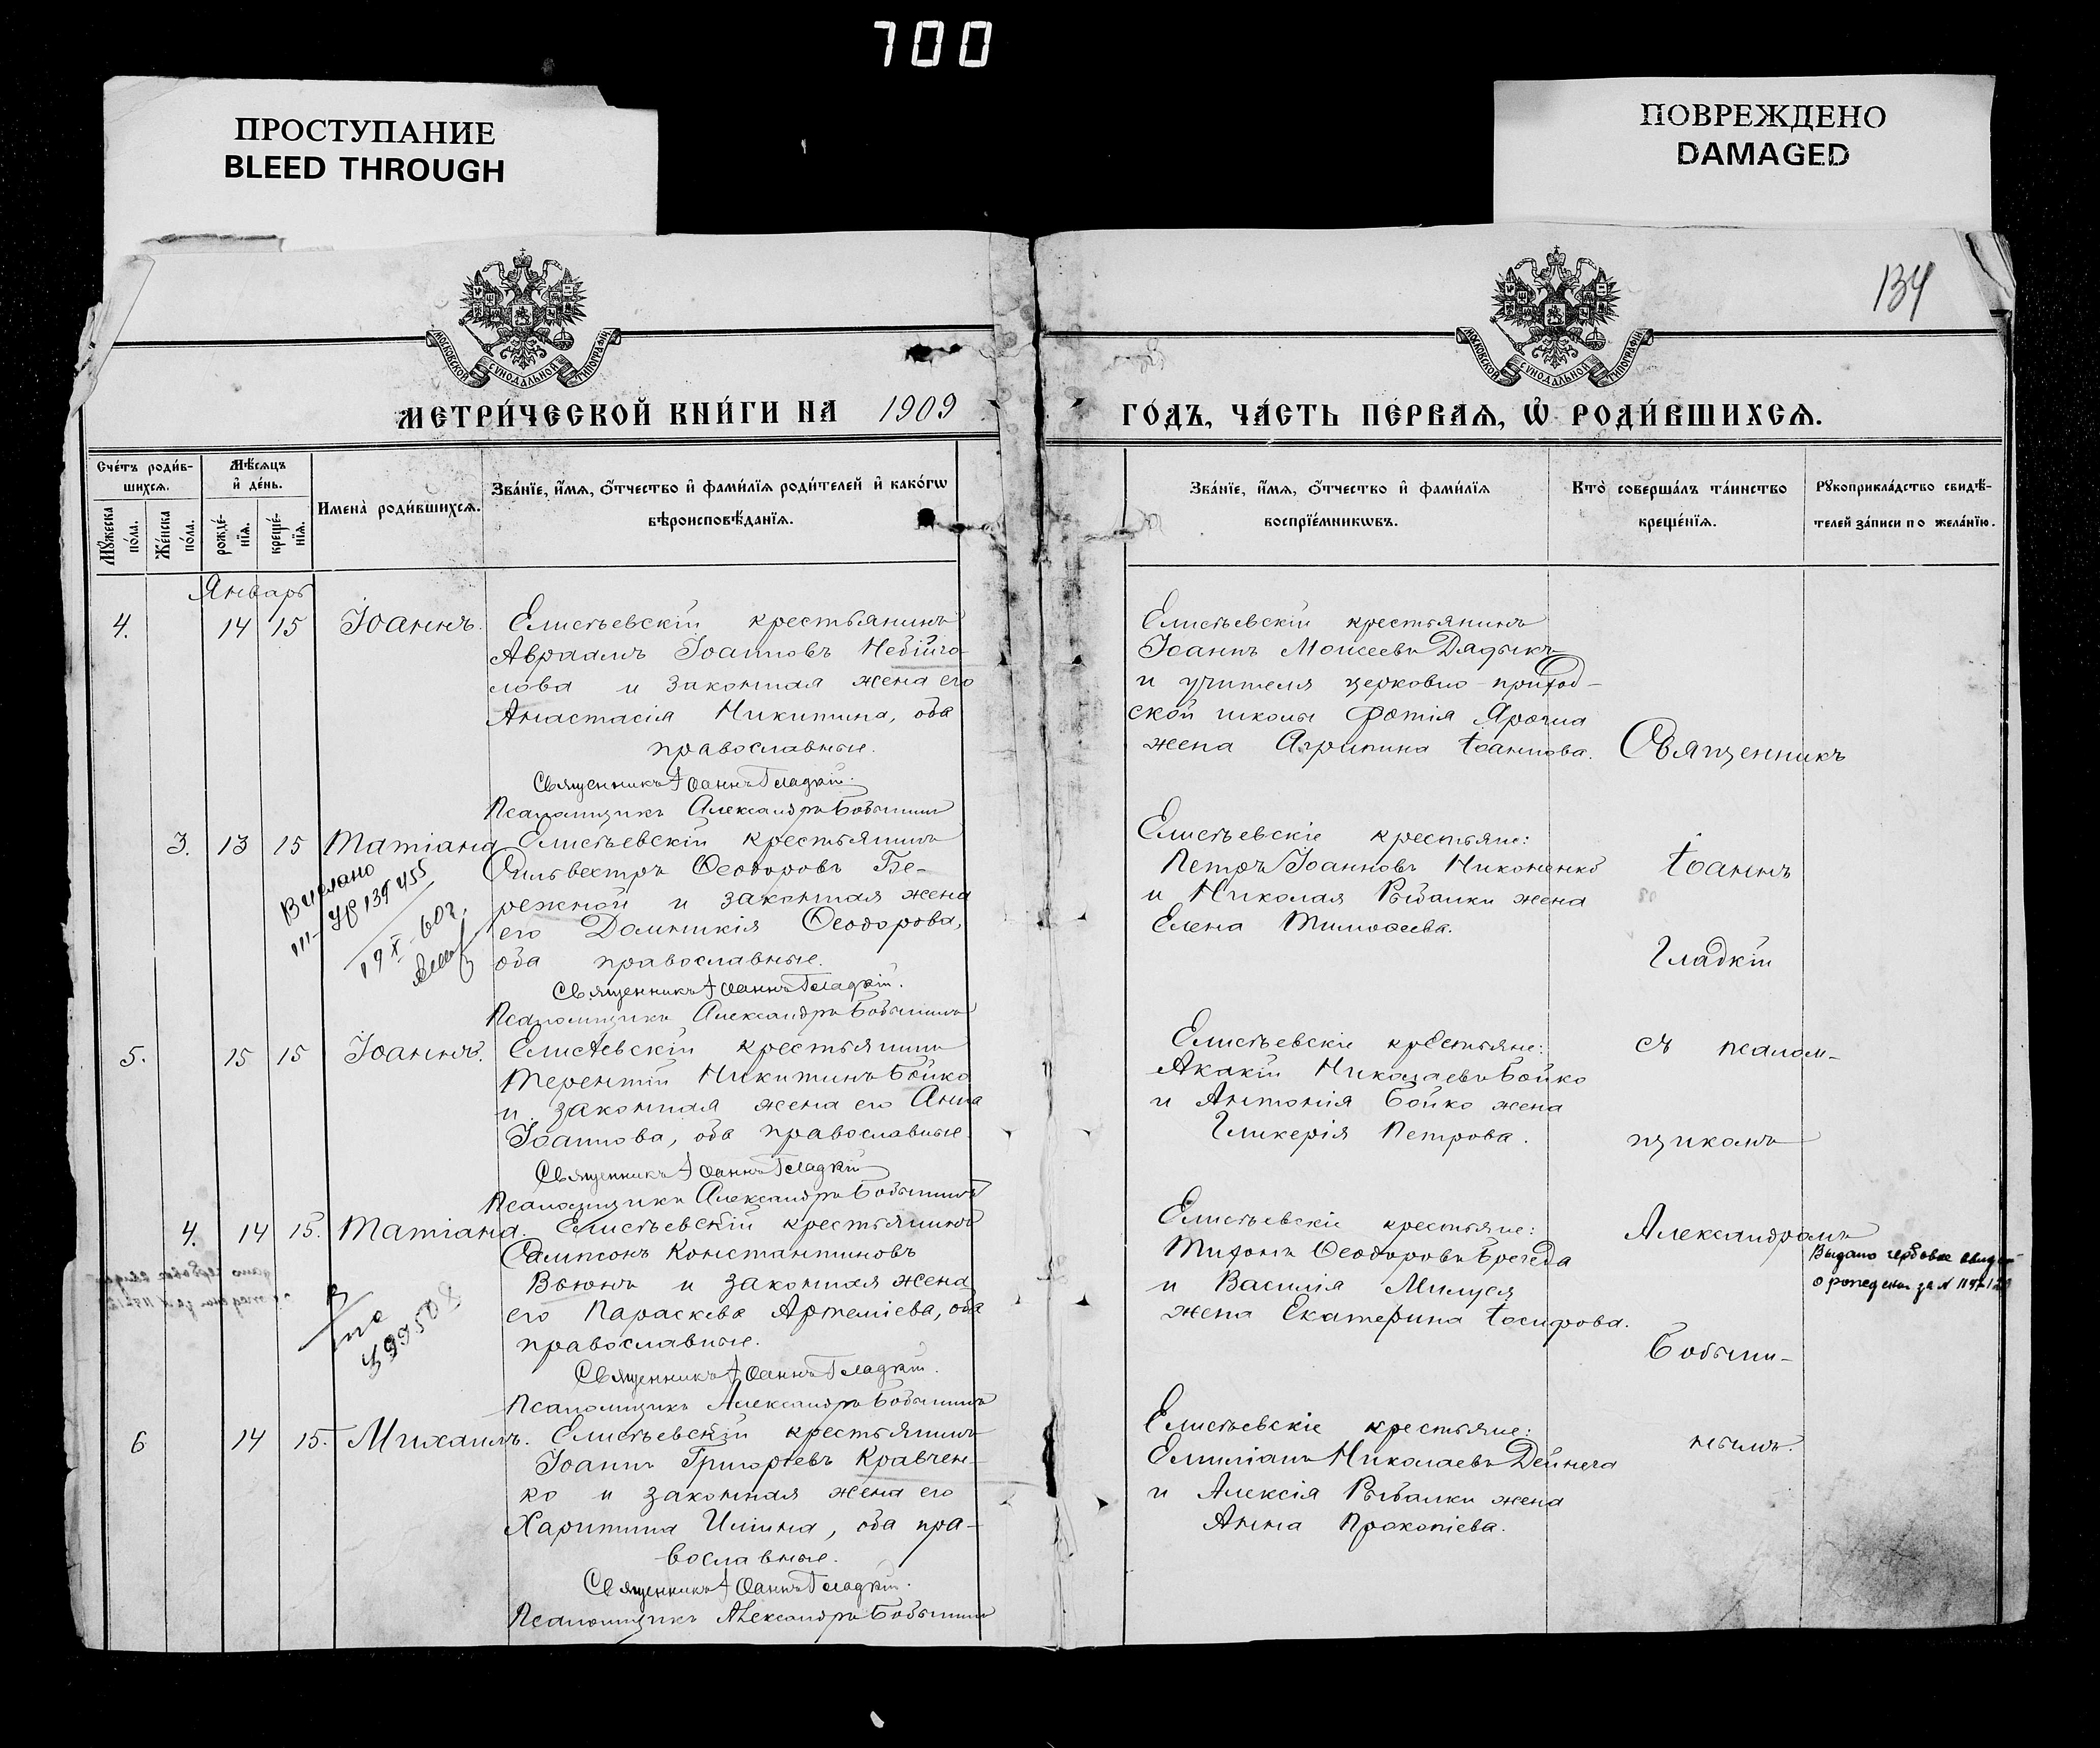 700
ПРОСТУПАНИЕ
BLEED THROUGH
ПОВРЕЖДЕНО
DAMAGED
134
МОСКОВСКОЙ СѴНОДАЛЬНОЙ ТИПОГРАФІИ
МОСКОВСКОЙ СѴНОДАЛЬНОЙ ТИПОГРАФІИ
МЕТРИ́ЧЕСКОЙ КНИ́ГИ НА 1909
ГО́ДЪ, ЧА́СТЬ ПЕ́РВАѦ, Ѡ҆ РОДИ́ВШИХСѦ.
Сче́тъ роди́в-
шихсѧ.
Мꙋ́жеска по́ла.
Же́нска по́ла.
Мѣ́сѧцъ
и҆ де́нь.
рожде́-
нїѧ.
креще́-
нїѧ.
Имена̀ роди́вшихсѧ.
Зва́нїе, и҆́мѧ, ѻ҆́тчество и҆ фами́лїѧ роди́телей и҆ како́гѡ
вѣроисповѣ́данїѧ.
Зва́нїе, и҆́мѧ, ѻ҆́тчество и҆ фами́лїѧ
воспрїе́мникѡвъ.
Кто̀ соверша́лъ та́инство
креще́нїѧ.
Рꙋкоприкла́дство свидѣ́-
телей за́писи по жела́нїю.
Январь
4. 14 15 Іоаннъ. Елисѣевскій крестьянинъ
Авраамъ Іоанновъ
и законная жена его
Анастасія Никитина, оба
православные.
Священникъ Іоаннъ Гладкій.
Псаломщикъ Александръ Бобынинъ
Елисѣевскій крестьянинъ
Іоаннъ Моисеевъ Дядыкъ
и учителя церковно-приход-
ской школы Фотія
жена Агрипина Іоаннова.
3. 13 15 Татіана Елисѣевскій крестьянинъ
Сильвестръ Ѳеодоровъ Бе-
режной и законная жена
его Домникія Ѳеодорова,
оба православные.
Священникъ Іоаннъ Гладкій.
Псаломщикъ Александръ Бобынинъ
19 X 60 г.
Елисѣевскіе крестьяне:
Петръ Іоанновъ Никоненко
и Николая Рыбалки жена
Елена Тимоѳеева.
5. 15 15 Іоаннъ. Елисѣевскій крестьянинъ
Терентій Никитинъ Бойко
и законная жена его Анна
Іоаннова, оба православные.
Священникъ Іоаннъ Гладкій
Псаломщикъ Александръ Бобынинъ
Елисѣевскіе крестьяне:
Акакій Николаевъ Бойко
и Антонія Бойко жена
Гликерія Петрова.
4. 14 15. Татіана. Елисѣевскій крестьянинъ
Сампсонъ Константиновъ
Вьюнъ и законная жена
его Параскева Артеміева, оба
православные.
Священникъ Іоаннъ Гладкій.
Псаломщикъ Александръ Бобынинъ
Елисѣевскіе крестьяне:
Тихонъ Ѳеодоровъ
и Василія
жена Екатерина Іосифова.
6 14 15. Михаилъ. Елисѣевскій крестьянинъ
Іоаннъ Григорьевъ Кравчен-
ко и законная жена его
Харитина Ильина, оба пра-
вославные.
Священникъ Іоаннъ Гладкій.
Псаломщикъ Александръ Бобынинъ
Елисѣевскіе крестьяне:
Емиліанъ Николаевъ Дейнега
и Алексія Рыбалки жена
Анна Прокопіева.
Священникъ
Іоаннъ
Гладкій
съ псалом-
щикомъ
Александромъ
Бобыни-
нымъ.
о рожденіи за №